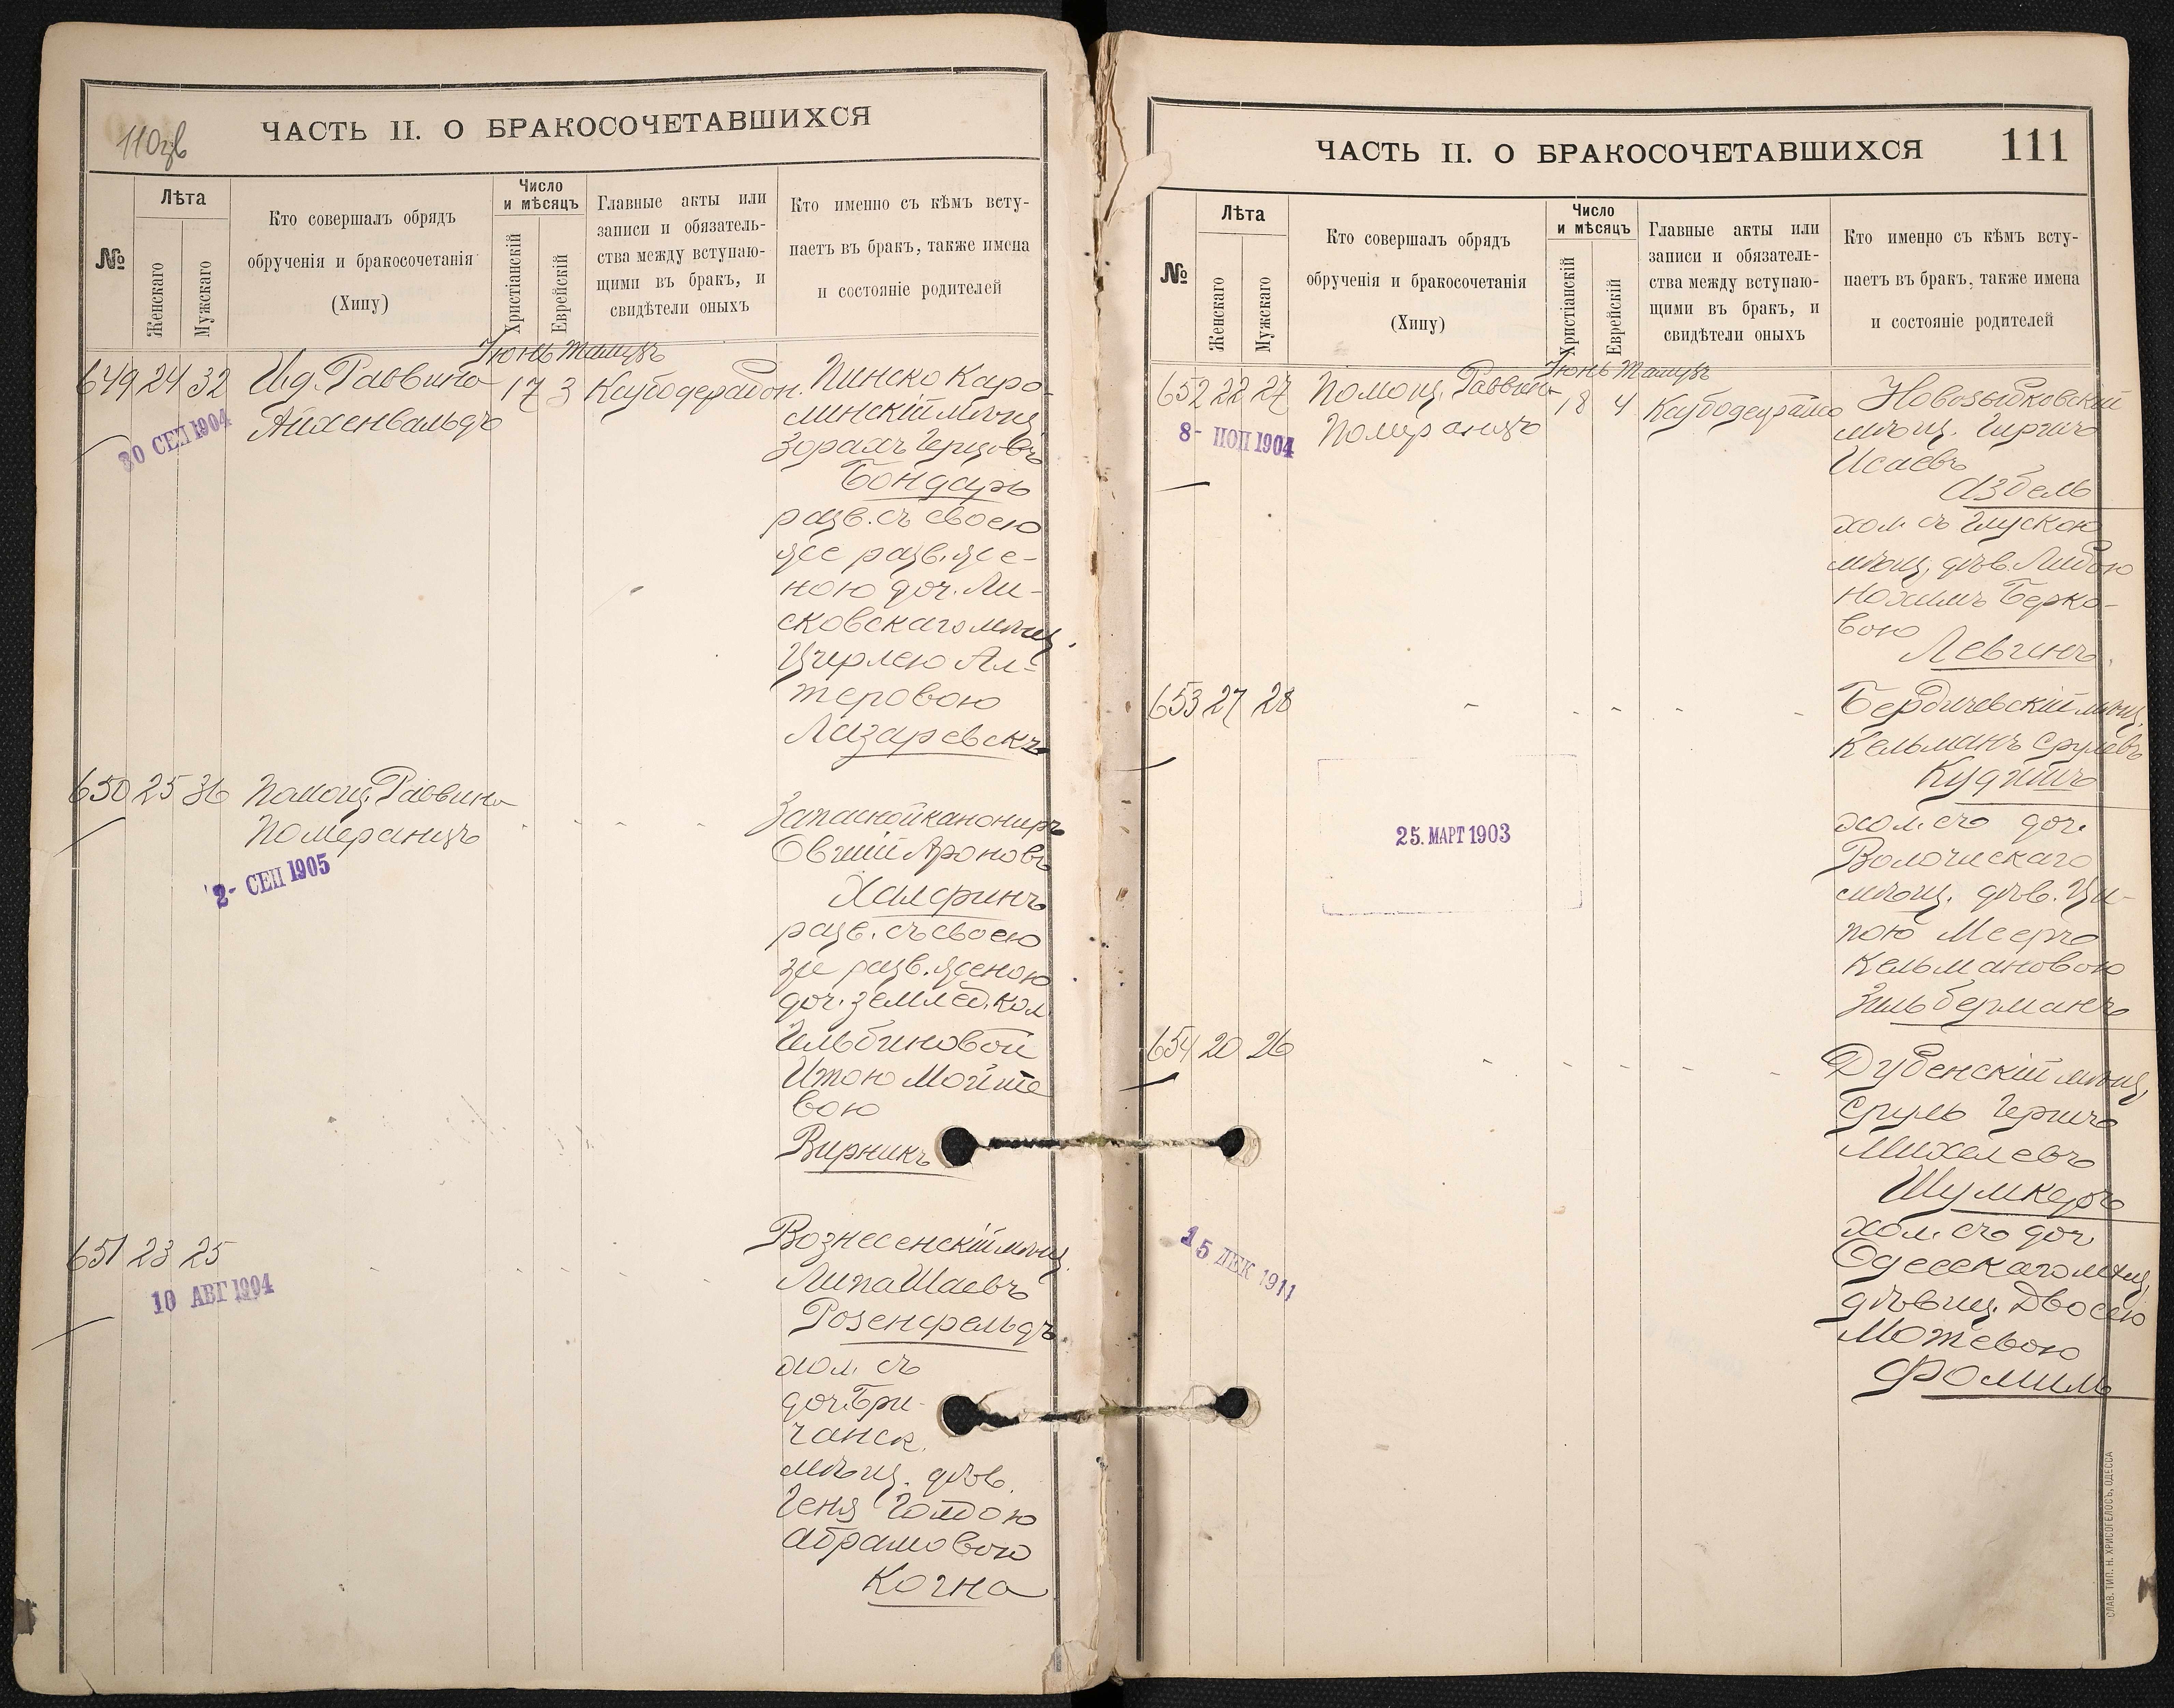 110об
ЧАСТЬ II. О БРАКОСОЧЕТАВШИХСЯ
№
Лѣта
Женскаго
Мужскаго
Кто совершалъ обрядъ
обрученія и бракосочетанія
(Хипу)
Число
и мѣсяцъ
Христіанскій
Еврейскій
Главные акты или
записи и обязатель-
ства между вступаю-
щими въ бракъ, и
свидѣтели оныхъ
Кто именно съ кѣмъ всту-
паетъ въ бракъ, также имена
и состояніе родителей
Іюнь Тамузъ
649 24 32 И.д. Раввина 17 3
Айхенвальдъ
30 СЕП 1904
Пинско Каро-
линскій мѣщ.
Герцовъ
Бондарь
разв. съ своею
же разв. же-
ною доч. Ли-
сковскаго мѣщ.
Цирлею Ал-
теровою
Лазаревскъ
650 25 36 Помощ. Раввина
Померанцъ
2- СЕП 1905
Запасной канониръ
Овшій Ароновъ
Халфинъ
разв. съ своею
же разв. женою
доч. землед. кол.
Ильбиновой
Итою Мойше
вою
Вирникъ
651 23 25
10 АВГ 1904
Вознесенскій мѣщ.
Липа Шаевъ
Розенфельдъ
хол. съ
доч. Бри-
чанск.
мѣщ. дѣв.
Геня Голдою
Абрамовою
Когна
ЧАСТЬ II. О БРАКОСОЧЕТАВШИХСЯ
111
№
Лѣта
Женскаго
Мужскаго
Кто совершалъ обрядъ
обрученія и бракосочетанія
(Хипу)
Число
и мѣсяцъ
Христіанскій
Еврейскій
Главные акты или
записи и обязатель-
ства между вступаю-
щими въ бракъ, и
свидѣтели оныхъ
Кто именно съ кѣмъ всту-
паетъ въ бракъ, также имена
и состояніе родителей
Іюнь Тамузъ
652 22 27 Помощ. Раввина 18 4
Померанцъ
8- 1904
Новозыбковскій
мѣщ. Гиршъ
Исаевъ
Азбель
хол. съ Глускою
мѣщ. дѣв. Либою
Нохимъ Берко-
вою
Левинъ
653 27 28
25. МАРТ 1903
Бердичевскій мѣщ.
Кельманъ Срулевъ
Кудишъ
хол. съ доч.
Волочискаго
мѣщ. дѣв. Ци-
пою Мееръ
Кельмановою
Зильберманъ
654 20 26
15 ДЕК 1911
Дубенскій мѣщ.
Сруль Гершъ
Михелевъ
Шумкеръ
хол. съ доч
Одесскаго мѣщ.
дѣвиц. Двосею
Мотевою
Фомиль
СЛАВ. ТИП. Н. ХРИСОГЕЛОСЪ, ОДЕССА